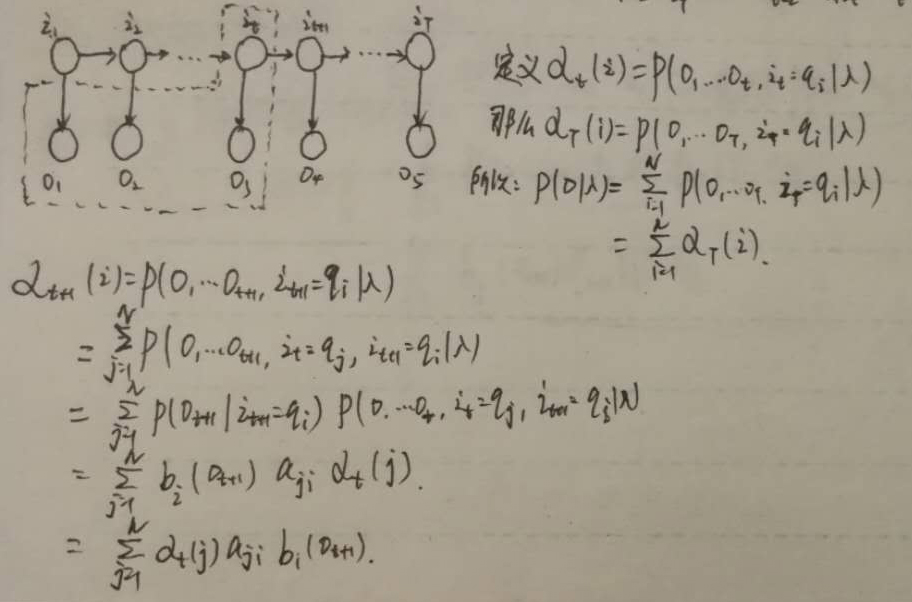 i₁ i₂ iₜ iₜ₊₁ i_T
... ...
O₁ O₂ O₃ O₄ O₅
定义 αₜ(i)=P(O₁...Oₜ, iₜ=qᵢ|λ)
那么 α_T(i)=P(O₁...O_T, i_T=qᵢ|λ)
所以: P(O|λ)= ∑_{i=1}^{N} P(O₁...O_T, i_T=qᵢ|λ)
= ∑_{i=1}^{N} α_T(i).
αₜ₊₁(i)=P(O₁...Oₜ₊₁, iₜ₊₁=qᵢ|λ)
= ∑_{j=1}^{N} P(O₁...Oₜ₊₁, iₜ=qⱼ, iₜ₊₁=qᵢ|λ)
= ∑_{j=1}^{N} P(Oₜ₊₁|iₜ₊₁=qᵢ) P(O₁...Oₜ, iₜ=qⱼ, iₜ₊₁=qᵢ|λ)
= ∑_{j=1}^{N} bᵢ(Oₜ₊₁) aⱼᵢ αₜ(j).
= ∑_{j=1}^{N} αₜ(j) aⱼᵢ bᵢ(Oₜ₊₁).